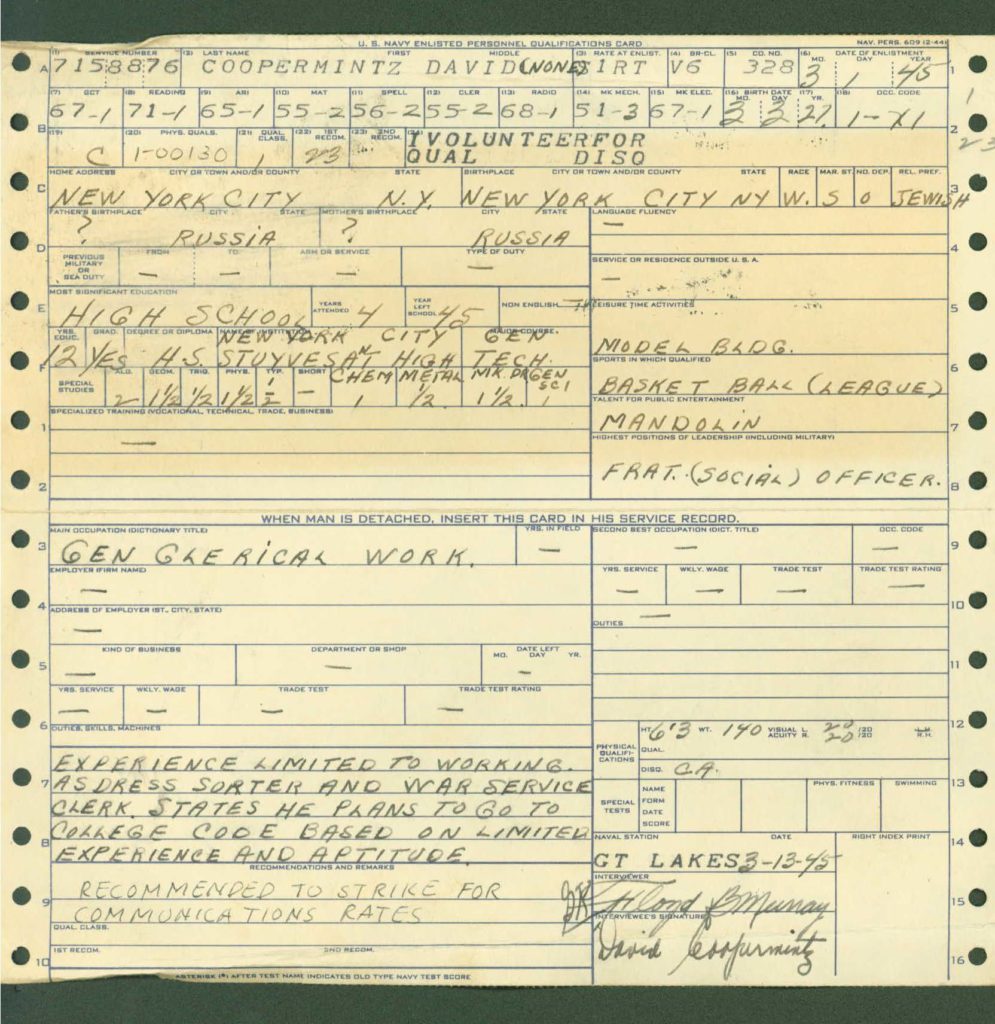 U. S. NAVY ENLISTED PERSONNEL QUALIFICATIONS CARD NAV. PERS. 609 (2-44)
(1) SERVICE NUMBER (2) LAST NAME FIRST MIDDLE (3) RATE AT ENLIST. (4) BR-CL. (5) CO. NO. (6) DATE OF ENLISTMENT
MO. DAY YEAR
A 7158876 COOPERMINTZ DAVID (NONE) S1RT V6 328 3 1 45 1
(7) GCT (8) READING (9) ARI (10) MAT (11) SPELL (12) CLER (13) RADIO (14) MK MECH. (15) MK ELEC. (16) BIRTH DATE (17) YR. (18) OCC. CODE
MO. DAY
67-1 71-1 65-1 55-2 56-2 55-2 68-1 51-3 67-1 3 2 27 1-X1
B 2
(19) (20) PHYS. QUALS. (21) QUAL. CLASS. (22) 1ST RECOM. (23) 2ND RECOM. (24)
C 1-00130 1 23 I VOLUNTEER FOR
QUAL DISQ
23
HOME ADDRESS CITY OR TOWN AND/OR COUNTY STATE BIRTHPLACE CITY OR TOWN AND/OR COUNTY STATE RACE MAR. ST. NO. DEP. REL. PREF.
C 3
NEW YORK CITY N.Y. NEW YORK CITY NY W. S O JEWISH
FATHER'S BIRTHPLACE CITY STATE MOTHER'S BIRTHPLACE CITY STATE LANGUAGE FLUENCY
? RUSSIA ? RUSSIA —
D 4
PREVIOUS MILITARY OR SEA DUTY FROM TO ARM OR SERVICE TYPE OF DUTY SERVICE OR RESIDENCE OUTSIDE U. S. A.
— — — — —
MOST SIGNIFICANT EDUCATION YEARS ATTENDED YEAR LEFT SCHOOL NON ENGLISH LEISURE TIME ACTIVITIES
E HIGH SCHOOL 4 45 5
YRS. EDUC. GRAD. DEGREE OR DIPLOMA NAME OF INSTITUTION MAJOR COURSE
NEW YORK CITY GEN MODEL BLDG.
12 YES H.S. STUYVESANT HIGH TECH.
SPORTS IN WHICH QUALIFIED
F 6
SPECIAL STUDIES ALG. GEOM. TRIG. PHYS. TYP. SHORT CHEM METAL MK. DR GEN SCI
2 1½ ½ 1½ ½ — 1 ½ 1½ 1
BASKET BALL (LEAGUE)
TALENT FOR PUBLIC ENTERTAINMENT
SPECIALIZED TRAINING (VOCATIONAL, TECHNICAL, TRADE, BUSINESS)
1 — MANDOLIN 7
HIGHEST POSITIONS OF LEADERSHIP (INCLUDING MILITARY)
2 FRAT. (SOCIAL) OFFICER. 8
WHEN MAN IS DETACHED, INSERT THIS CARD IN HIS SERVICE RECORD.
MAIN OCCUPATION (DICTIONARY TITLE) YRS. IN FIELD SECOND BEST OCCUPATION (DICT. TITLE) OCC. CODE
3 GEN CLERICAL WORK. — — — 9
EMPLOYER (FIRM NAME) YRS. SERVICE WKLY. WAGE TRADE TEST TRADE TEST RATING
— — — — —
4 10
ADDRESS OF EMPLOYER (ST., CITY, STATE) DUTIES —
—
KIND OF BUSINESS DEPARTMENT OR SHOP DATE LEFT
MO. DAY YR.
5 — — — 11
YRS. SERVICE WKLY. WAGE TRADE TEST TRADE TEST RATING
— — — —
6 12
DUTIES, SKILLS, MACHINES
PHYSICAL QUALIFICATIONS HT. 6'3 WT. 140 VISUAL ACUITY L. 20/20 R. 20/20 L.H. R.H.
QUAL.
EXPERIENCE LIMITED TO WORKING. DISQ. CA.
7 ASDRESS SORTER AND WAR SERVICE 13
SPECIAL TESTS NAME FORM DATE SCORE PHYS. FITNESS SWIMMING
CLERK. STATES HE PLANS TO GO TO
COLLEGE CODE BASED ON LIMITED
NAVAL STATION DATE RIGHT INDEX PRINT
8 EXPERIENCE AND APTITUDE. 14
GT LAKES 3-13-45
RECOMMENDATIONS AND REMARKS INTERVIEWER
9 RECOMMENDED TO STRIKE FOR Floyd B Murray 15
COMMUNICATIONS RATES
INTERVIEWEE'S SIGNATURE
QUAL. CLASS.
David Coopermintz
1ST RECOM. 2ND RECOM.
10 16
ASTERISK (*) AFTER TEST NAME INDICATES OLD TYPE NAVY TEST SCORE